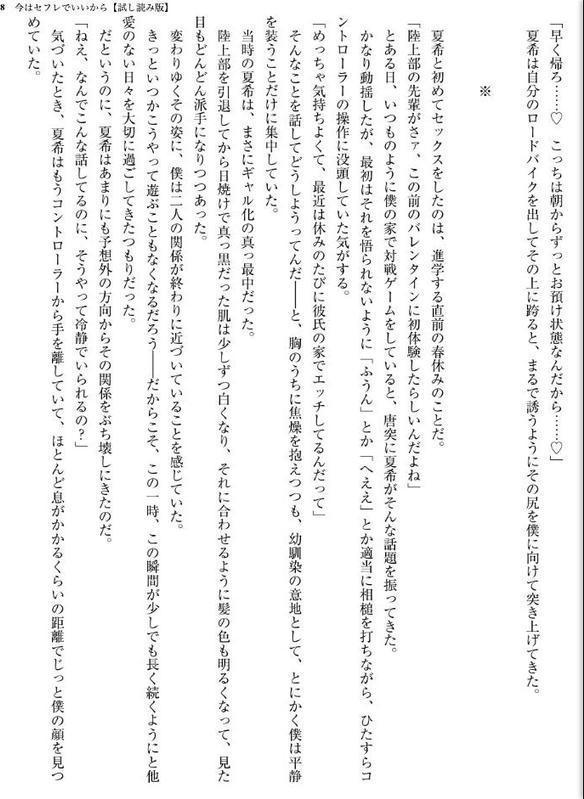 8 今はセフレでいいから【試し読み版】
「早く帰ろ……♡　こっちは朝からずっとお預け状態なんだから……♡」
夏希は自分のロードバイクを出してその上に跨ると、まるで誘うようにその尻を僕に向けて突き上げてきた。
※
夏希と初めてセックスをしたのは、進学する直前の春休みのことだ。
「陸上部の先輩がさァ、この前のバレンタインに初体験したらしいんだよね」
とある日、いつものように僕の家で対戦ゲームをしていると、唐突に夏希がそんな話題を振ってきた。
かなり動揺したが、最初はそれを悟られないように「ふうん」とか「へええ」とか適当に相槌を打ちながら、ひたすらコ
ントローラーの操作に没頭していた気がする。
「めっちゃ気持ちよくて、最近は休みのたびに彼氏の家でエッチしてるんだって」
そんなことを話してどうしようってんだ――と、胸のうちに焦燥を抱えつつも、幼馴染の意地として、とにかく僕は平静
を装うことだけに集中していた。
当時の夏希は、まさにギャル化の真っ最中だった。
陸上部を引退してから日焼けで真っ黒だった肌は少しずつ白くなり、それに合わせるように髪の色も明るくなって、見た
目もどんどん派手になりつつあった。
変わりゆくその姿に、僕は二人の関係が終わりに近づいていることを感じていた。
きっといつかこうやって遊ぶこともなくなるだろう――だからこそ、この一時、この瞬間が少しでも長く続くようにと他
愛のない日々を大切に過ごしてきたつもりだった。
だというのに、夏希はあまりにも予想外の方向からその関係をぶち壊しにきたのだ。
「ねえ、なんでこんな話してるのに、そうやって冷静でいられるの？」
気づいたとき、夏希はもうコントローラーから手を離していて、ほとんど息がかかるくらいの距離でじっと僕の顔を見つ
めていた。